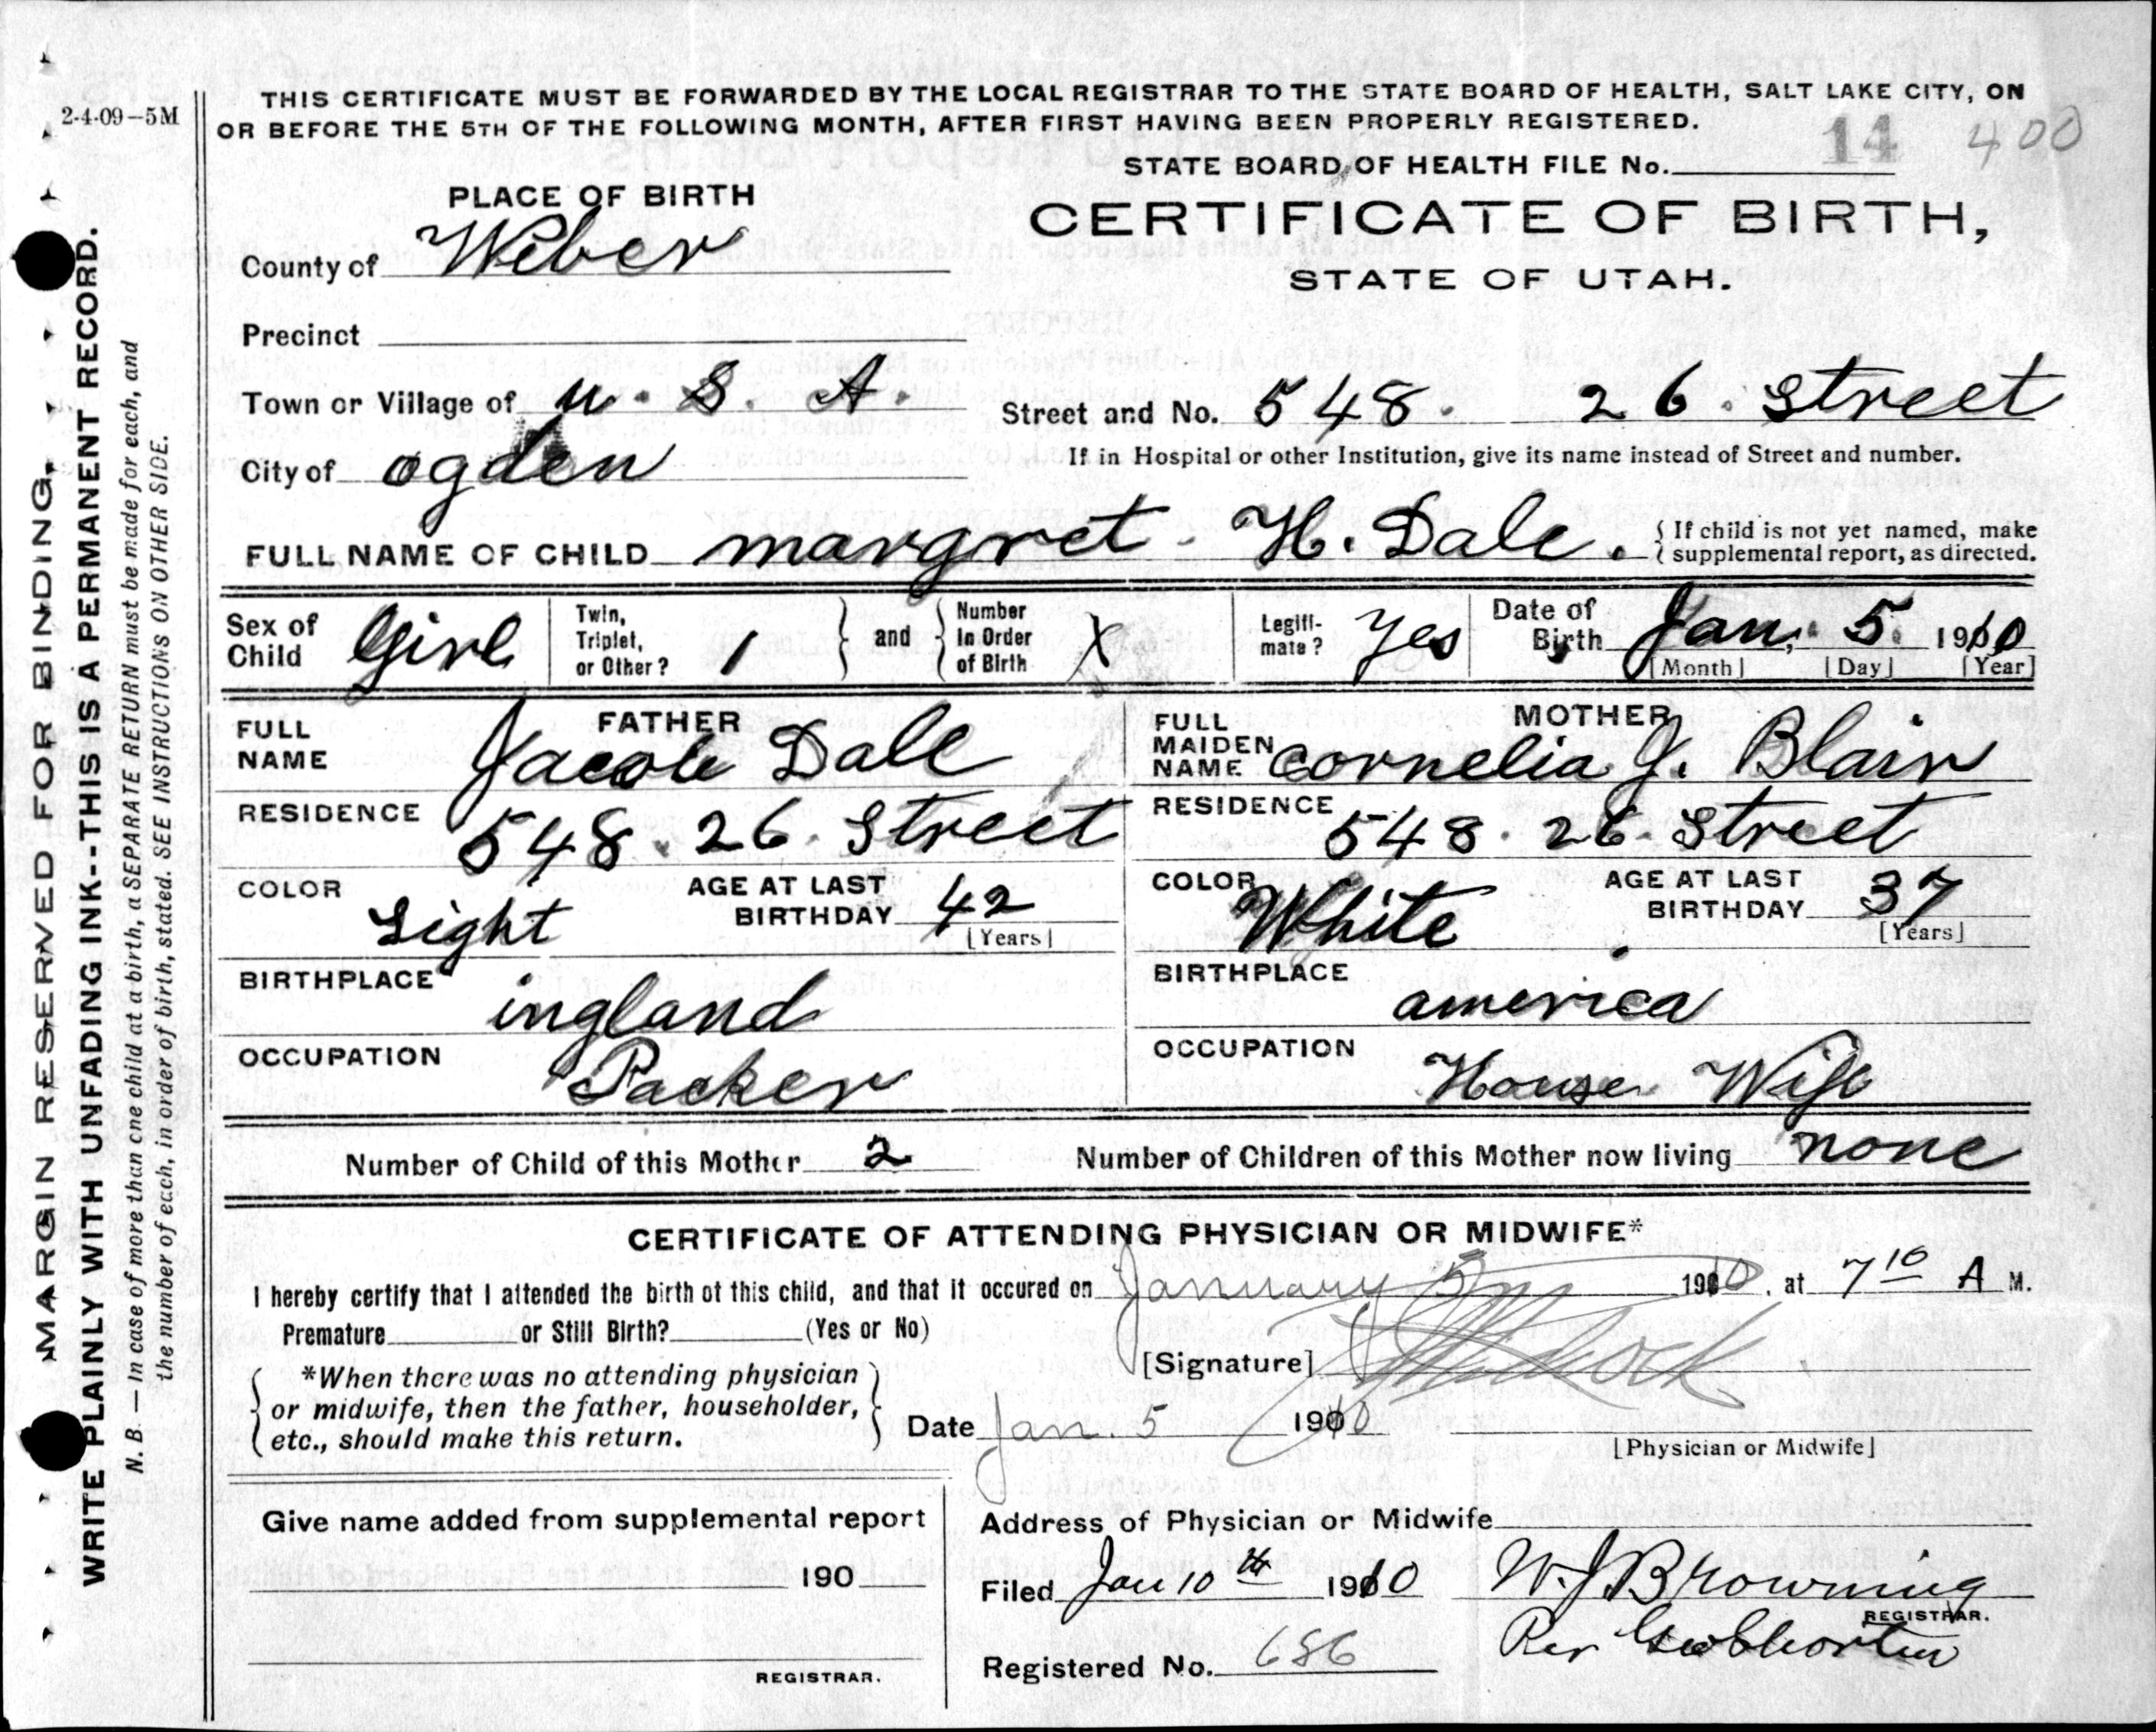 2-4-09-5M
THIS CERTIFICATE MUST BE FORWARDED BY THE LOCAL REGISTRAR TO THE STATE BOARD OF HEALTH, SALT LAKE CITY, ON
OR BEFORE THE 5TH OF THE FOLLOWING MONTH, AFTER FIRST HAVING BEEN PROPERLY REGISTERED.
STATE BOARD OF HEALTH FILE No. 14 400
PLACE OF BIRTH
CERTIFICATE OF BIRTH,
STATE OF UTAH.
County of Weber
Precinct
Town or Village of U. S. A.
Street and No. 548. 26. Street
If in Hospital or other Institution, give its name instead of Street and number.
City of ogden
FULL NAME OF CHILD margret H. Dale.
{ If child is not yet named, make
supplemental report, as directed.
Sex of Child Girl
Twin, Triplet, or Other? 1 } and { Number In Order of Birth X
Legiti-mate? Yes
Date of Birth Jan. 5. 1910
[Month] [Day] [Year]
FATHER
FULL NAME Jacob Dale
RESIDENCE 548. 26. Street
COLOR Light
AGE AT LAST BIRTHDAY 42
[Years]
BIRTHPLACE ingland
OCCUPATION Packer
MOTHER
FULL MAIDEN NAME Cornelia J. Blair
RESIDENCE 548. 26. Street
COLOR White
AGE AT LAST BIRTHDAY 37
[Years]
BIRTHPLACE america
OCCUPATION House Wife
Number of Child of this Mother 2
Number of Children of this Mother now living none
CERTIFICATE OF ATTENDING PHYSICIAN OR MIDWIFE*
I hereby certify that I attended the birth of this child, and that it occured on January 5 1910, at 7 10 A M.
Premature or Still Birth? (Yes or No)
[Signature]
*When there was no attending physician
or midwife, then the father, householder,
etc., should make this return.
Date Jan. 5 1910
[Physician or Midwife]
Give name added from supplemental report
190
REGISTRAR.
Address of Physician or Midwife
Filed Jan 10th 1910 W. J. Browning
REGISTRAR.
Per
Registered No. 686
MARGIN RESERVED FOR BINDING.
WRITE PLAINLY WITH UNFADING INK--THIS IS A PERMANENT RECORD.
N. B.—In case of more than one child at a birth, a SEPARATE RETURN must be made for each, and
the number of each, in order of birth, stated. SEE INSTRUCTIONS ON OTHER SIDE.